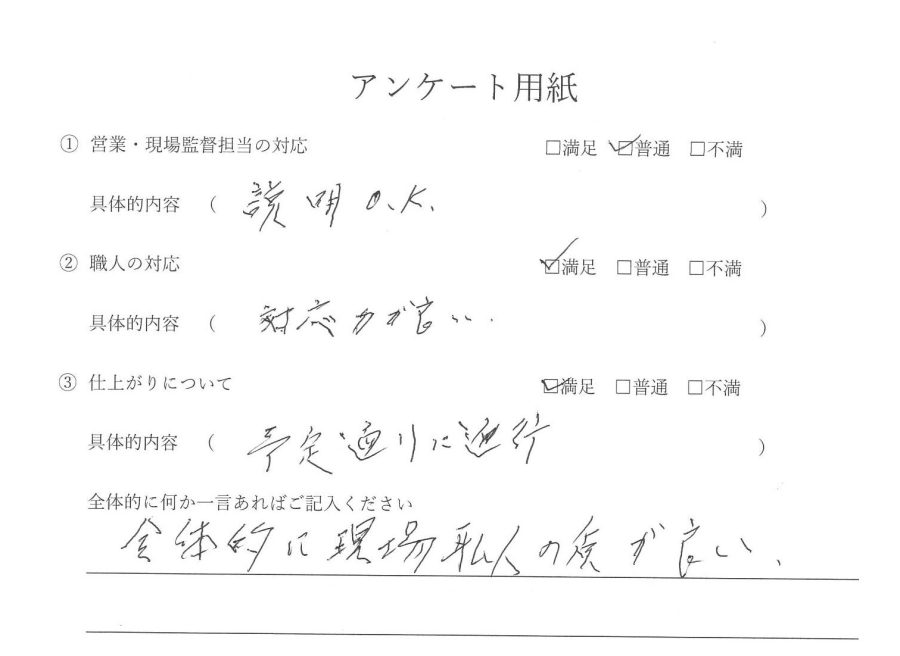 アンケート用紙
① 営業・現場監督担当の対応 □満足 ☑普通 □不満
具体的内容 ( 説明O.K. )
② 職人の対応 ☑満足 □普通 □不満
具体的内容 ( 対応力が良い. )
③ 仕上がりについて ☑満足 □普通 □不満
具体的内容 ( 予定通りに進行 )
全体的に何か一言あればご記入ください
全体的に現場 人の質が良い、